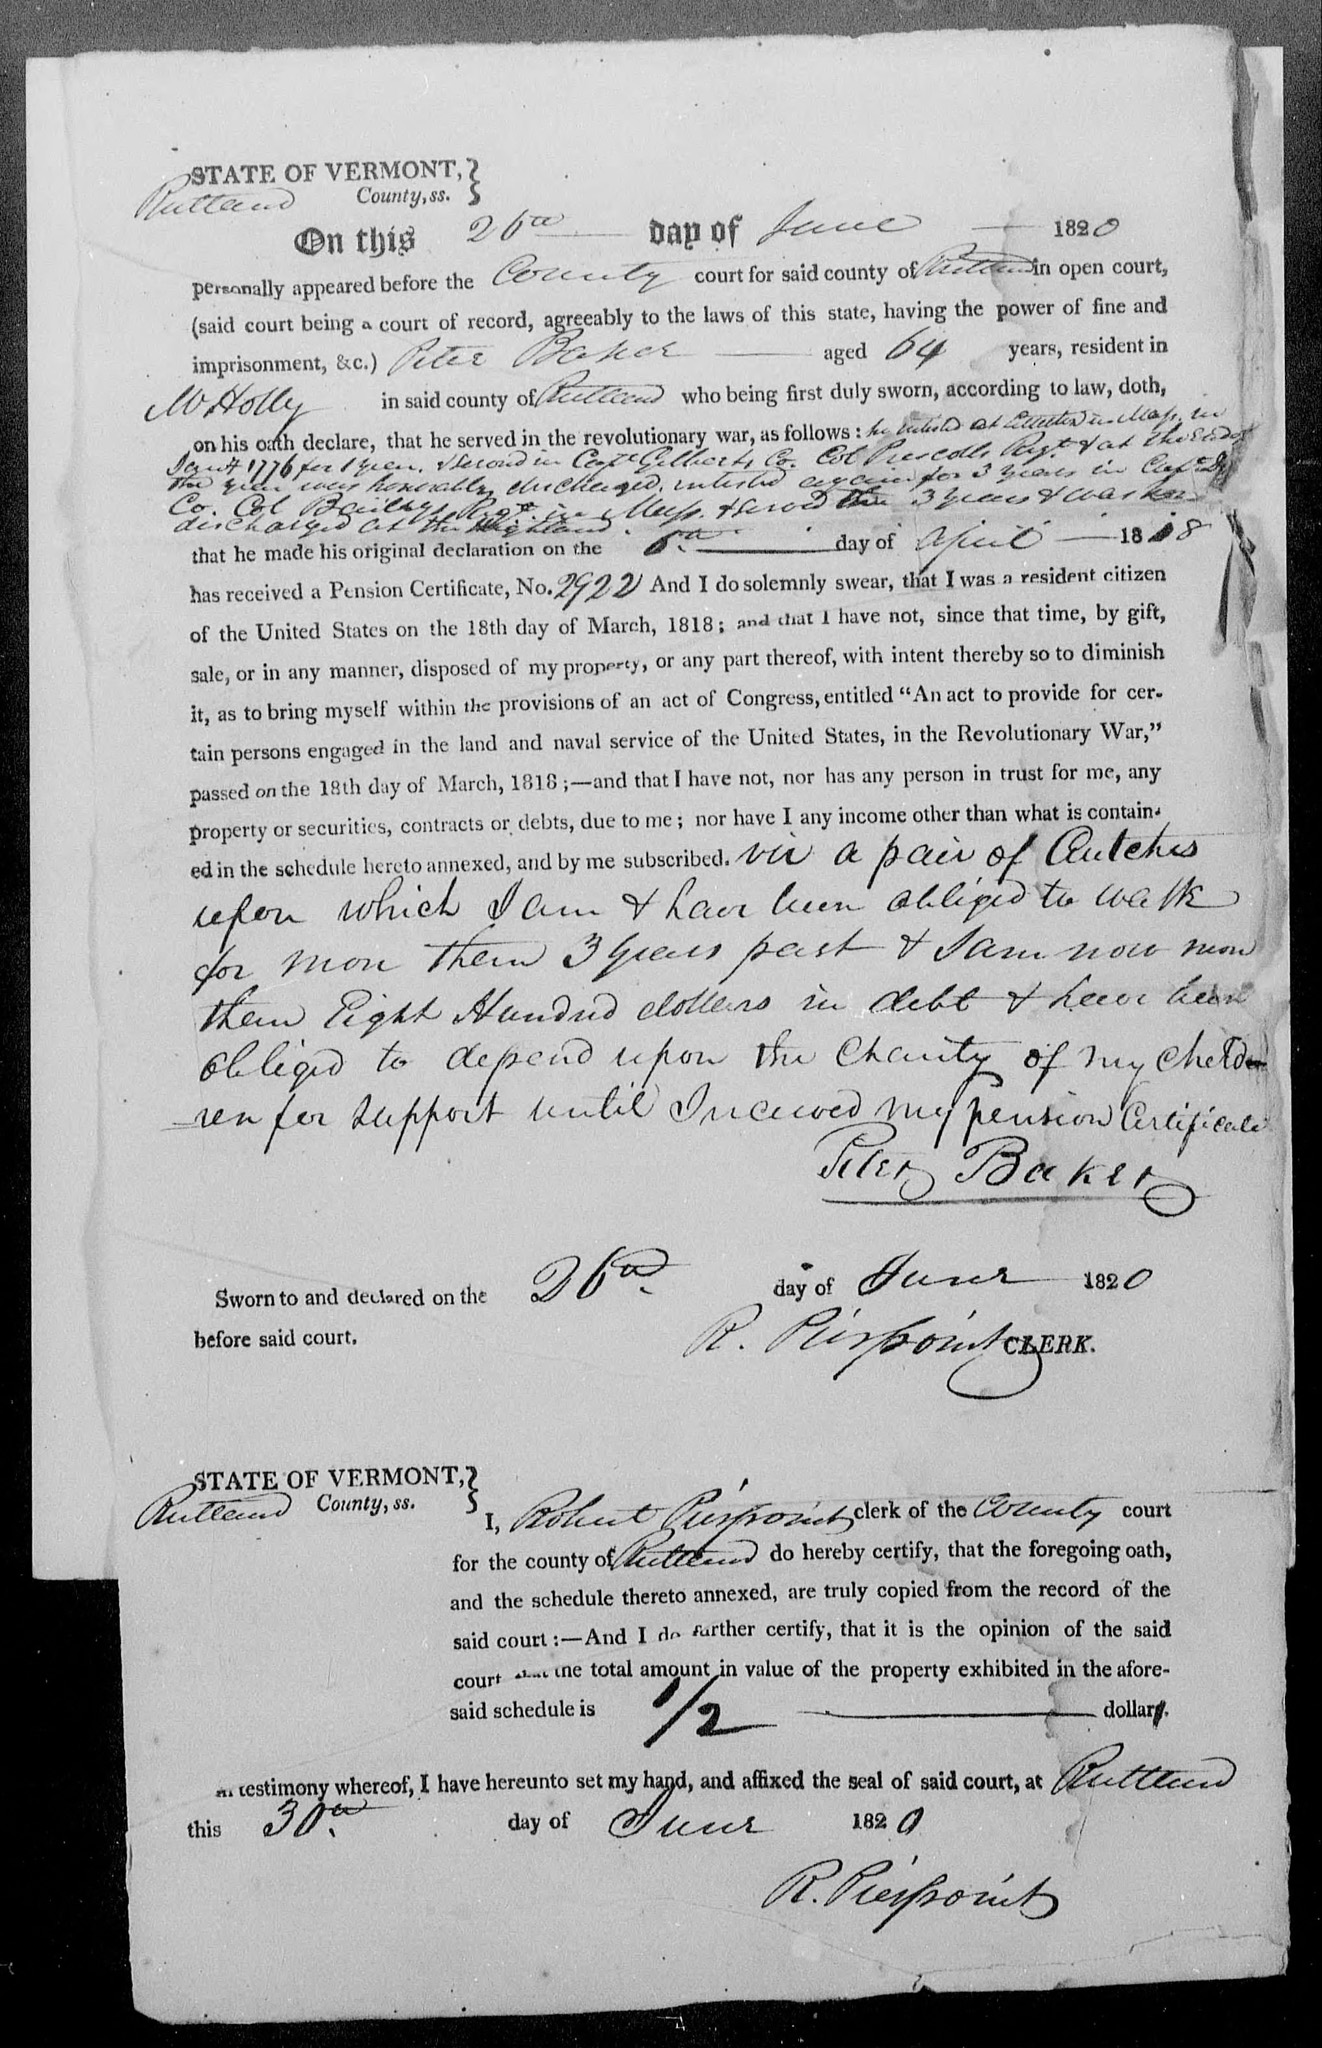 STATE OF VERMONT,
Rutland County, ss.
On this 26th day of June 1820
personally appeared before the County court for said county of Rutland in open court,
(said court being a court of record, agreeably to the laws of this state, having the power of fine and
imprisonment, &c.) Peter Baker aged 64 years, resident in
Mt Holly in said county of Rutland who being first duly sworn, according to law, doth,
on his oath declare, that he served in the revolutionary war, as follows: he inlisted at in Mass. in
Jany 1776 for 1 year, & served in Capt Gilberts Co. Col Prescotts Regt & at the end of
the year was honorably discharged, inlisted again for 3 years in Capt
Co. Col Baileys Regt in Mass. & served 3 years & was
discharged at the Highland.
that he made his original declaration on the 6th day of April 1818
has received a Pension Certificate, No. 2922 And I do solemnly swear, that I was a resident citizen
of the United States on the 18th day of March, 1818; and that I have not, since that time, by gift,
sale, or in any manner, disposed of my property, or any part thereof, with intent thereby so to diminish
it, as to bring myself within the provisions of an act of Congress, entitled "An act to provide for cer-
tain persons engaged in the land and naval service of the United States, in the Revolutionary War,"
passed on the 18th day of March, 1818;—and that I have not, nor has any person in trust for me, any
property or securities, contracts or debts, due to me; nor have I any income other than what is contain-
ed in the schedule hereto annexed, and by me subscribed. viz a pair of Crutches
upon which I am & have been obliged to walk
for more than 3 years past & I am now more
than Eight Hundred dollars in debt & have been
obliged to depend upon the Charity of my Child-
-ren for support until I received my pension Certificate
Peter Baker
Sworn to and declared on the 26th day of June 1820
before said court. R. Pierpoint CLERK.
STATE OF VERMONT,
Rutland County, ss.
I, Robert Pierpoint clerk of the County court
for the county of Rutland do hereby certify, that the foregoing oath,
and the schedule thereto annexed, are truly copied from the record of the
said court:—And I do further certify, that it is the opinion of the said
court that the total amount in value of the property exhibited in the afore-
said schedule is 1/2 dollar.
In testimony whereof, I have hereunto set my hand, and affixed the seal of said court, at Rutland
this 30th day of June 1820
R. Pierpoint